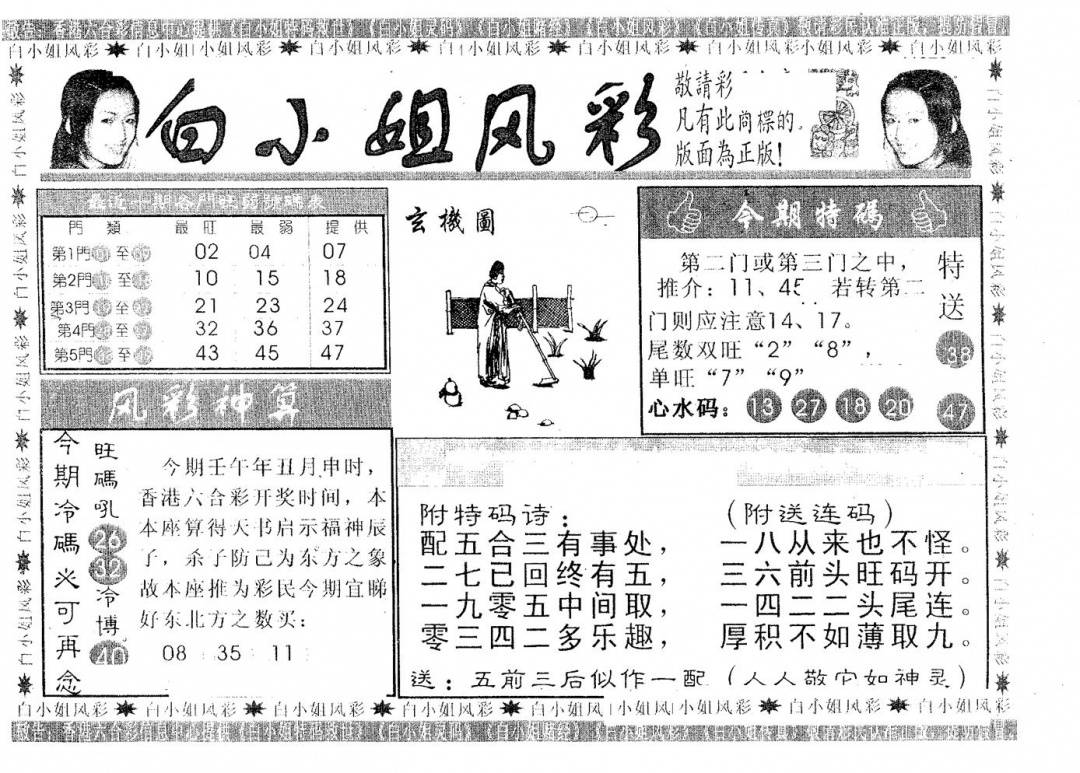 敬告：香港六合彩信息中心提供《白小姐特码救世》《白小姐灵码》《白小姐赌经》《白小姐风彩》《白小姐传真》敬请彩民认准正版，提防假冒！
白小姐风彩 白小姐风彩 白小姐风彩 白小姐风彩 白小姐风彩 白小姐风彩 白小姐风彩 白小姐风彩
白小姐风彩
敬請彩
凡有此商標的
版面為正版！
最近十期各門旺弱號碼表
門類 最旺 最弱 提供
第1門 至09 02 04 07
第2門 至 10 15 18
第3門 至 21 23 24
第4門 至 32 36 37
第5門 至 43 45 47
玄機圖
今期特碼
第二门或第三门之中，
推介：11、45 若转第二
门则应注意14、17。
尾数双旺“2”“8”，
单旺“7”“9”
心水码：13 27 18 20
特送 38 47
风彩神算
今期冷碼火可再念
旺碼吼 26 32 冷博 40
今期壬午年丑月申时，
香港六合彩开奖时间，本
本座算得天书启示福神辰
子，杀子防己为东方之象
故本座推为彩民今期宜睇
好东北方之数买：
08 35 11
附特码诗：
配五合三有事处，
二七己回终有五，
一九零五中间取，
零三四二多乐趣，
（附送连码）
一八从来也不怪。
三六前头旺码开。
一四二二头尾连。
厚积不如薄取九。
送：五前三后似作一配（人人敬它如神灵）
白小姐风彩 白小姐风彩 白小姐风彩 白小姐风彩 白小姐风彩 小姐风 小姐风彩 白小姐风彩 白小姐风彩